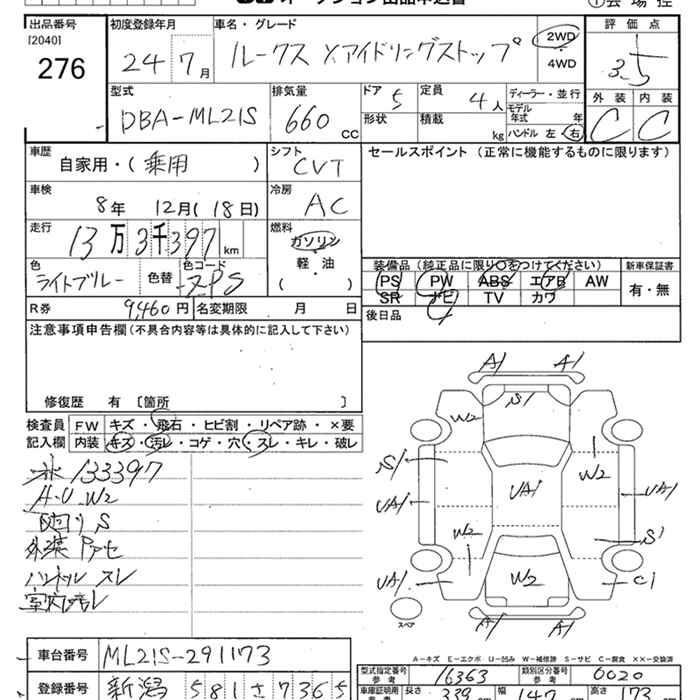 出品番号 初度登録年月 車名・グレード 評価点
[2040]
276
24 7月
ルークス Xアイドリングストップ
2WD
・
4WD
3.5
型式 排気量 ドア 定員 ディーラー・並行 外装 内装
DBA-ML21S 660cc 5 4人
モデル年式 年
形状 積載 kg ハンドル 左・右
C C
車歴 シフト セールスポイント(正常に機能するものに限ります)
自家用・(乗用) CVT
車検 冷房
8年 12月(18日) AC
走行 燃料
13万3千397km ガソリン
軽・油
( )
色 色替 色コード
ライトブルー ZPS
装備品(純正品に限り○をつけてください) 新車保証書
PS PW ABS エアB AW
SR ナビ TV カワ
有・無
R券 9,460円 名変期限 月 日
後日品
注意事項申告欄(不具合内容等は具体的に記入して下さい)
修復歴 有 〔箇所 〕
検査員 FW キズ・飛石・ヒビ割・リペア跡・×要
記入欄 内装 キズ・汚レ・コゲ・穴・スレ・キレ・破レ
133397
A・U W2
S
外装
ハンドル スレ
室内汚レ
A1 A1
S1
W2
S1 W2
UA1 UA1 UA1
W2 S1
UA1 W2 C1
A1 A1
スペア
A-キズ E-エクボ U-凹み W-補修跡 S-サビ C-腐食 ××-交換済
車台番号 ML21S-291173
型式指定番号 参考 16363 類別区分番号 参考 0020
登録番号 新潟 581 せ 7365
長さ 339 幅 147 高さ 173